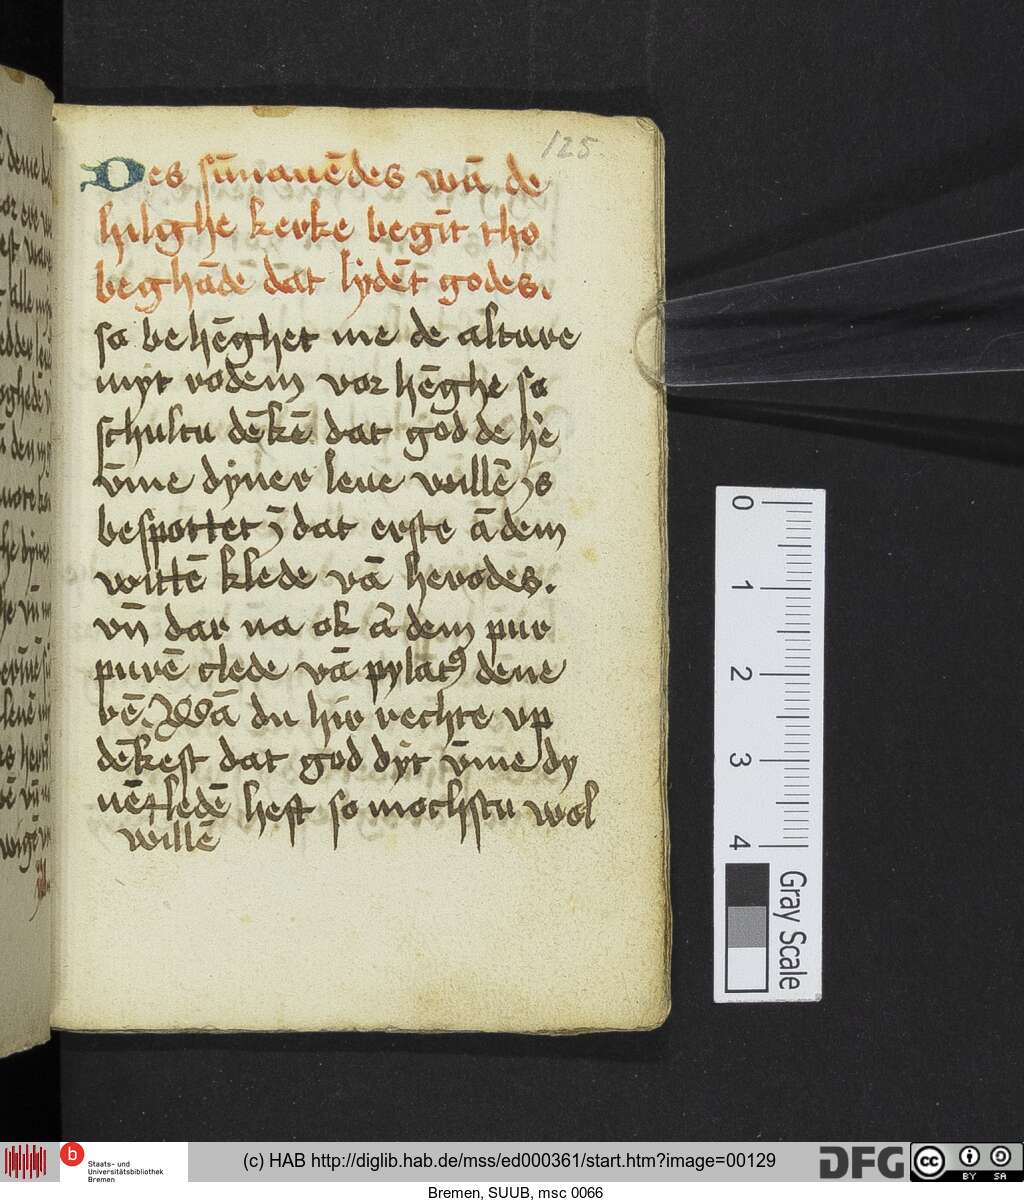 125.
Des sūnauēdes wā de
hilghe kerke begīt tho
beghāde dat lydēt godes.
so behēghet me de altare
myt rodem vor hēghe so
schultu dēkē dat god de he
vme dyner leue willē ys
bespottet ī dat erste ā dem
wittē klede vā herodes.
vn̄ dar na ok ā dem pur
purē clede vā pylatꝰ dene
rē. Wā du hir rechte vp
dēkest dat god dyt vme dy
nēt ledē heft so mochstu wol
willē
0
1
2
3
4
Gray Scale
b
Staats- und
Universitätsbibliothek
Bremen
(c) HAB http://diglib.hab.de/mss/ed000361/start.htm?image=00129
DFG
cc
BY SA
Bremen, SUUB, msc 0066